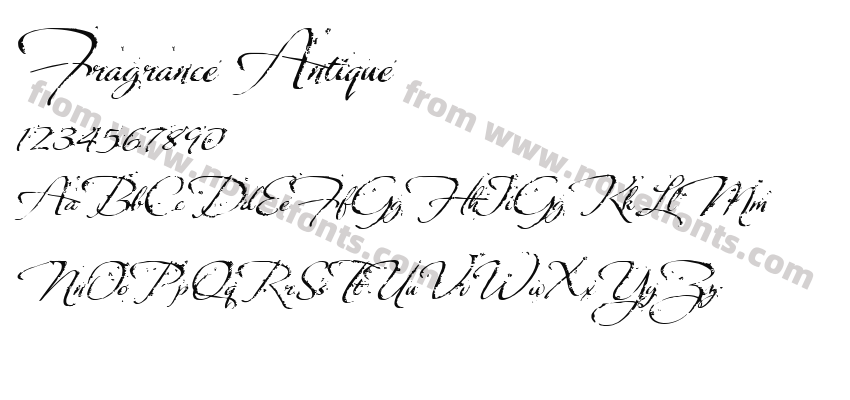 Fragrance Antique
1234567890
AaBbCcDdEeFfGgHhIiGgKkLlMm
NnOoPpQqRrSsTtUuVvWwXxYyZz
from www.novelfonts.com
from www.novelfonts.com